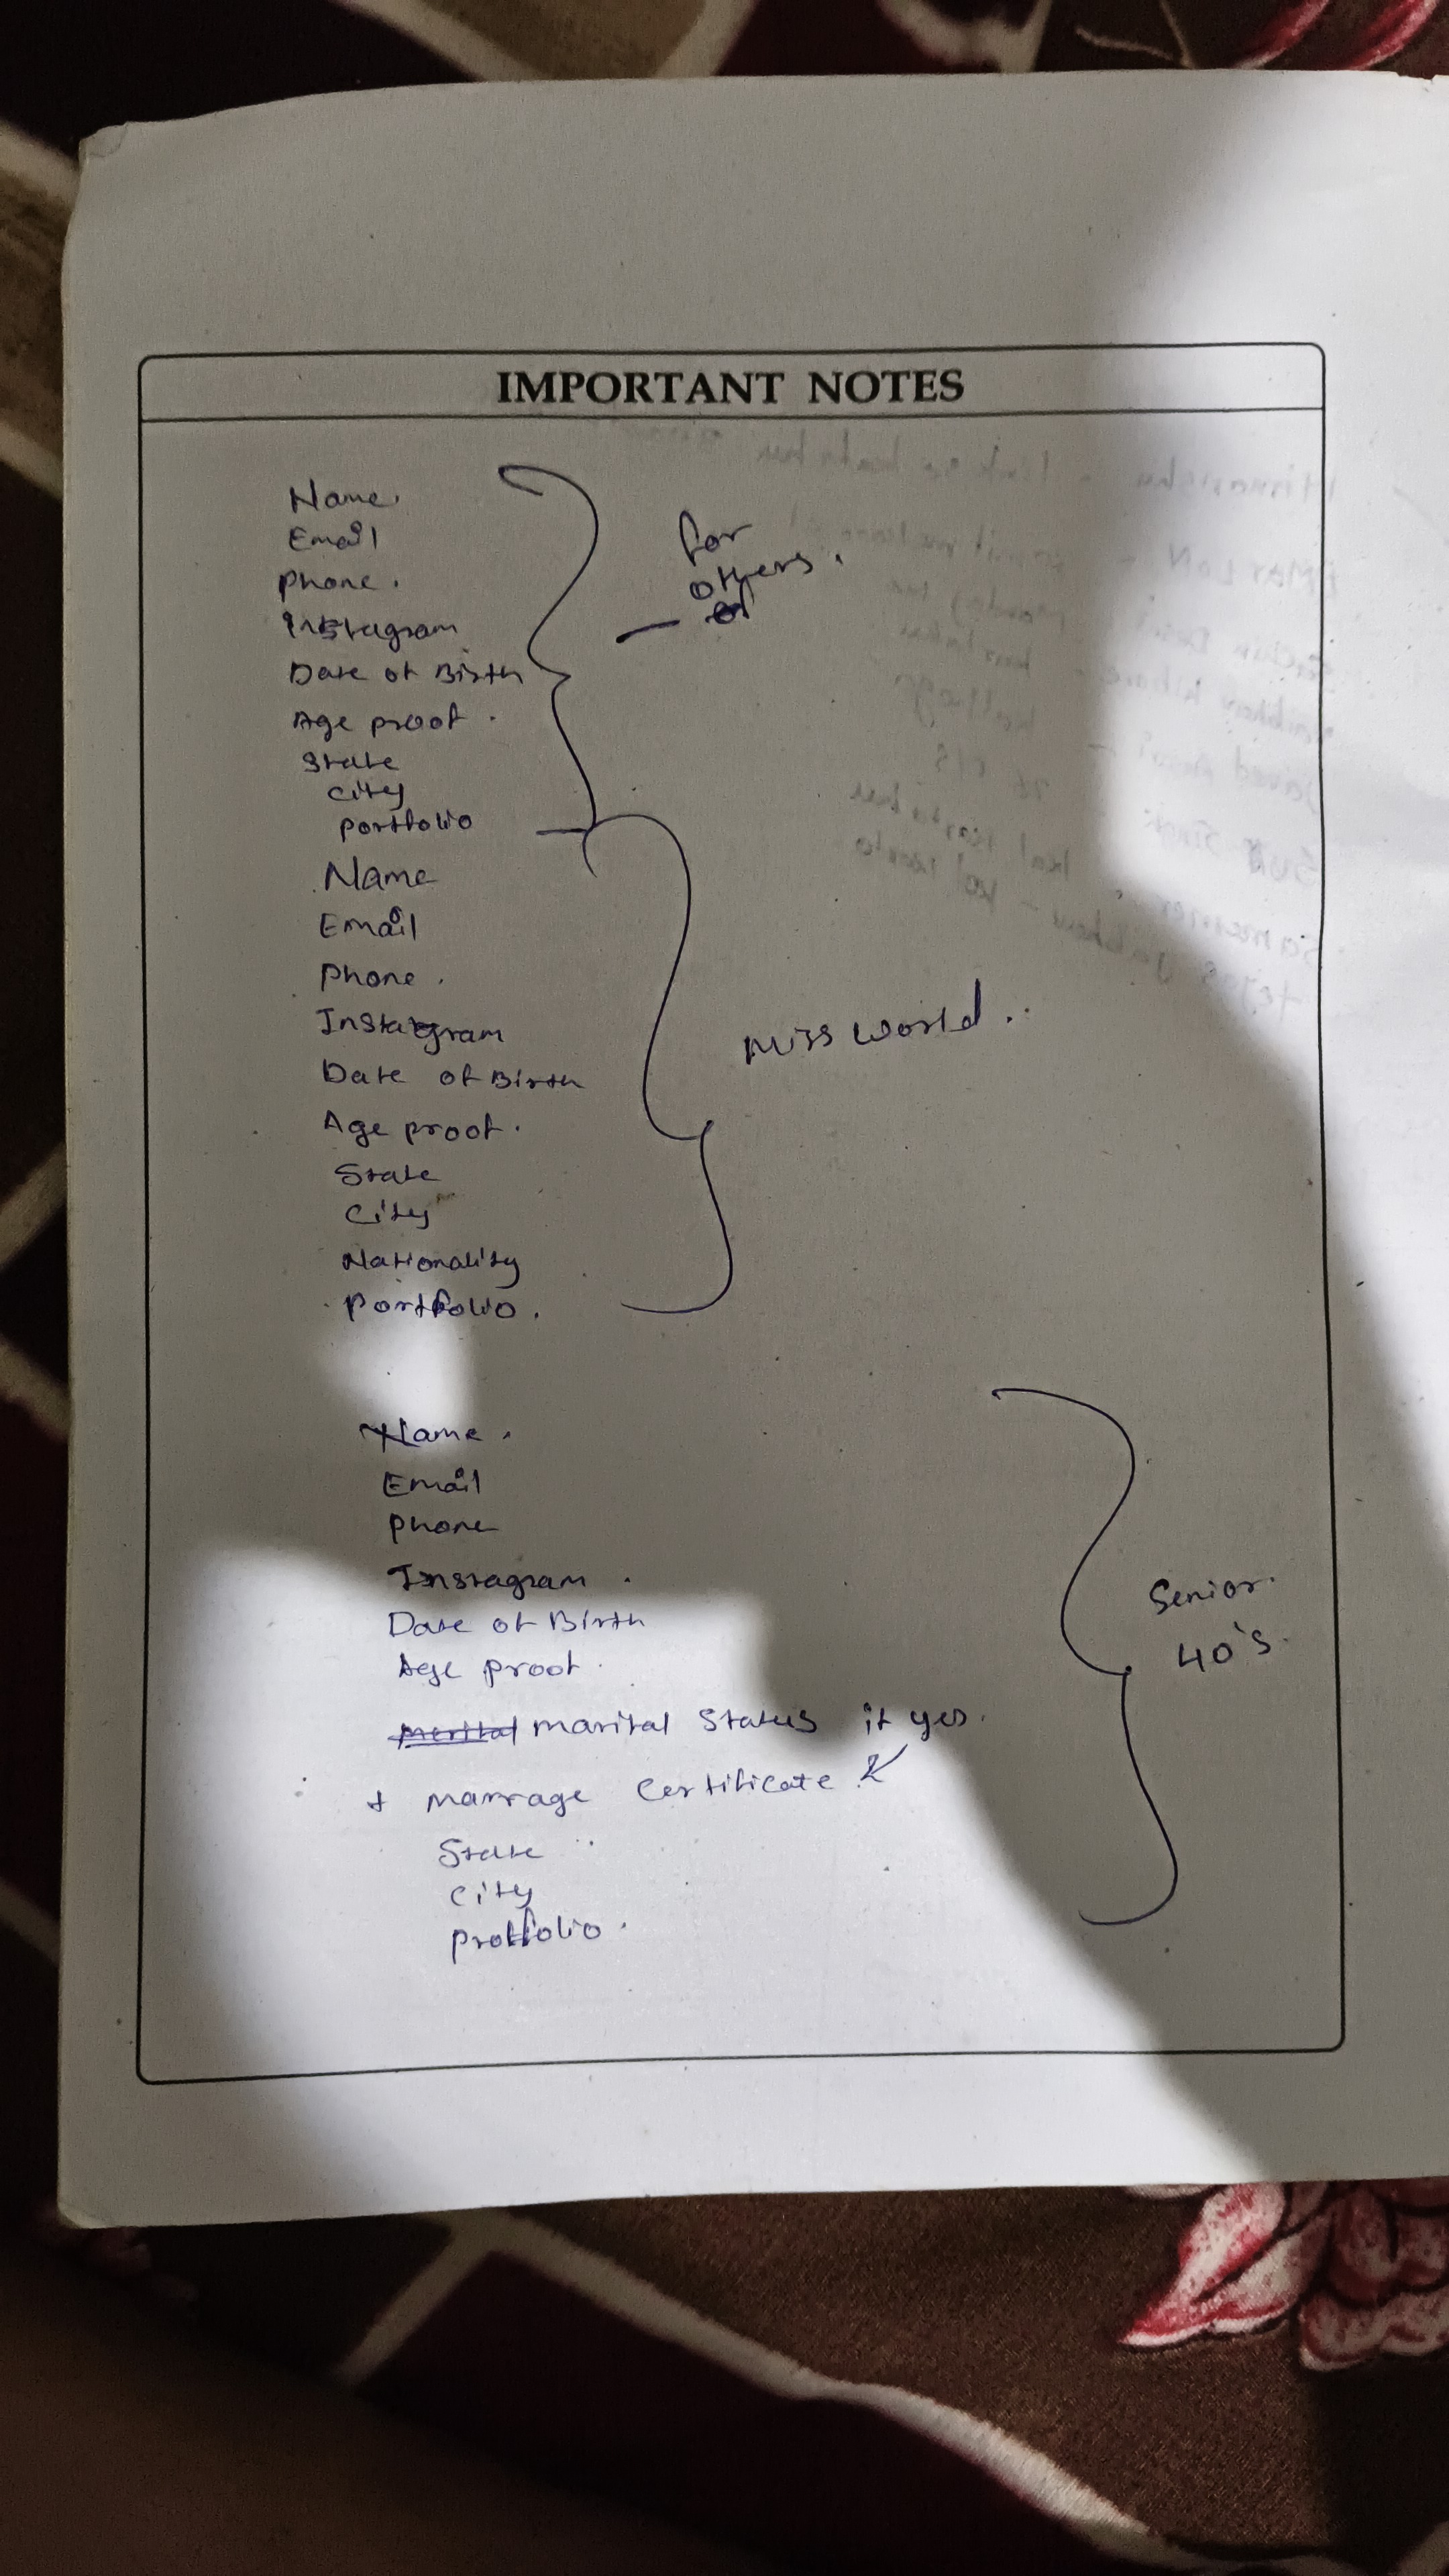 IMPORTANT NOTES
Name.
Email
Phone.
Instagram
Date of Birth
Age proof.
State
City
portfolio
for
others.
Name
Email
Phone.
Instagram
Date of Birth
Age proof.
State
City
Nationality
Portfolio.
Miss world..
Name.
Email
Phone
Instagram.
Date of Birth
Age proof.
marital Status if yes.
+ marrage Certificate
State
City
Protfolio.
Senior.
40's.